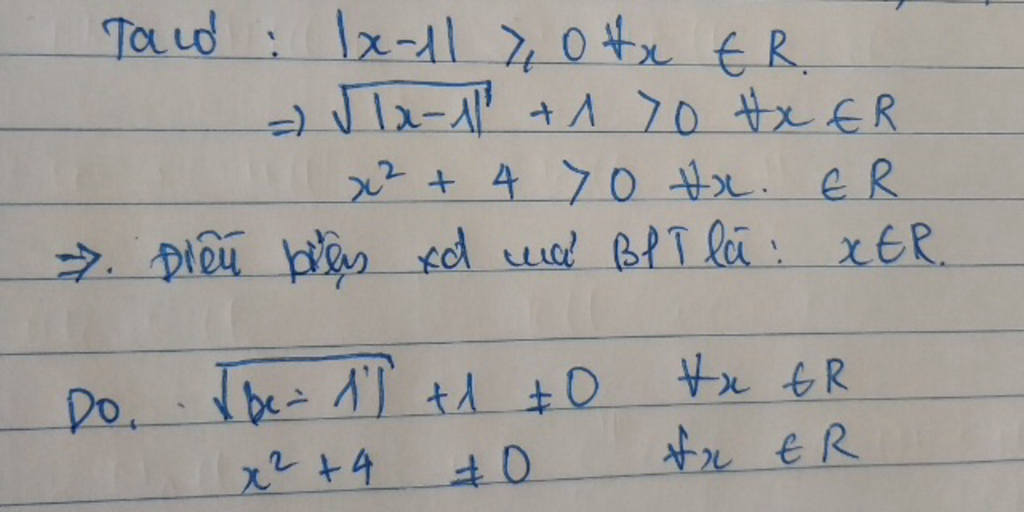 Ta có : |x-1| ≥ 0 ∀x ∈ R.
=> √|x-1| + 1 > 0 ∀x ∈ R
x² + 4 > 0 ∀x. ∈ R
=>. Điều kiện xđ của BPT là : x∈R.
Do. √|x-1| + 1 ≠ 0 ∀x ∈ R
x² + 4 ≠ 0 ∀x ∈ R